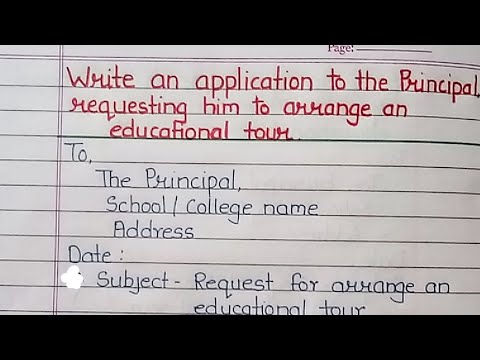 Page:
Write an application to the Principal,
requesting him to arrange an
educational tour.
To,
The Principal,
School/College name
Address
Date :
Subject - Request for arrange an
educational tour